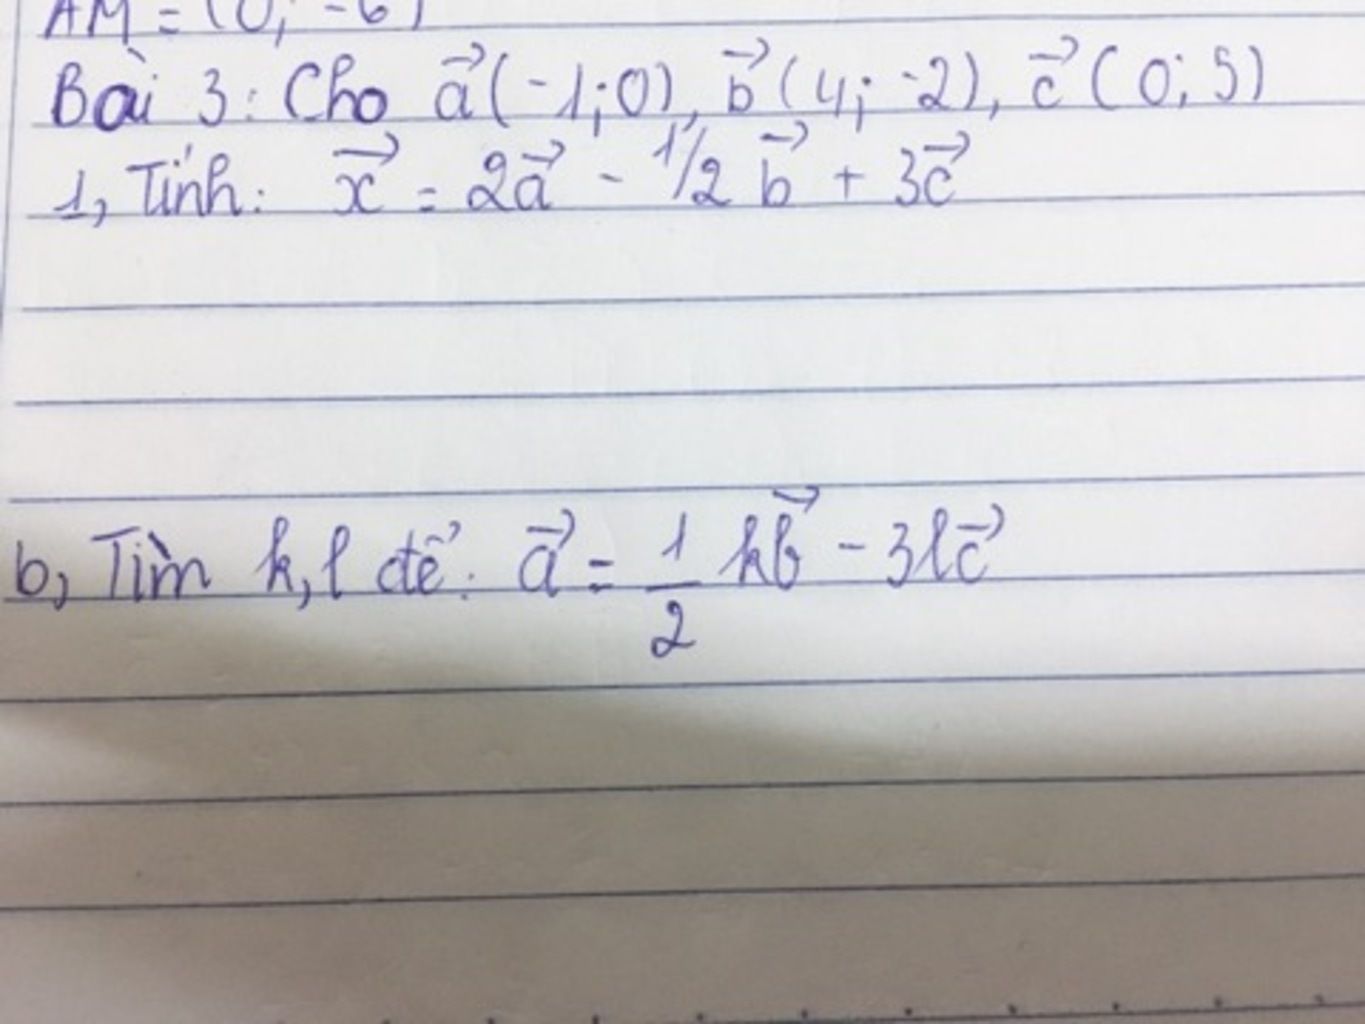 AM = (0; -6)
Bài 3: Cho a⃗(-1;0), b⃗(4; -2), c⃗(0; 5)
1, Tính: x⃗ = 2a⃗ - 1/2 b⃗ + 3c⃗
b, Tìm k, l để: a⃗ = \frac{1}{2} kb⃗ - 3lc⃗